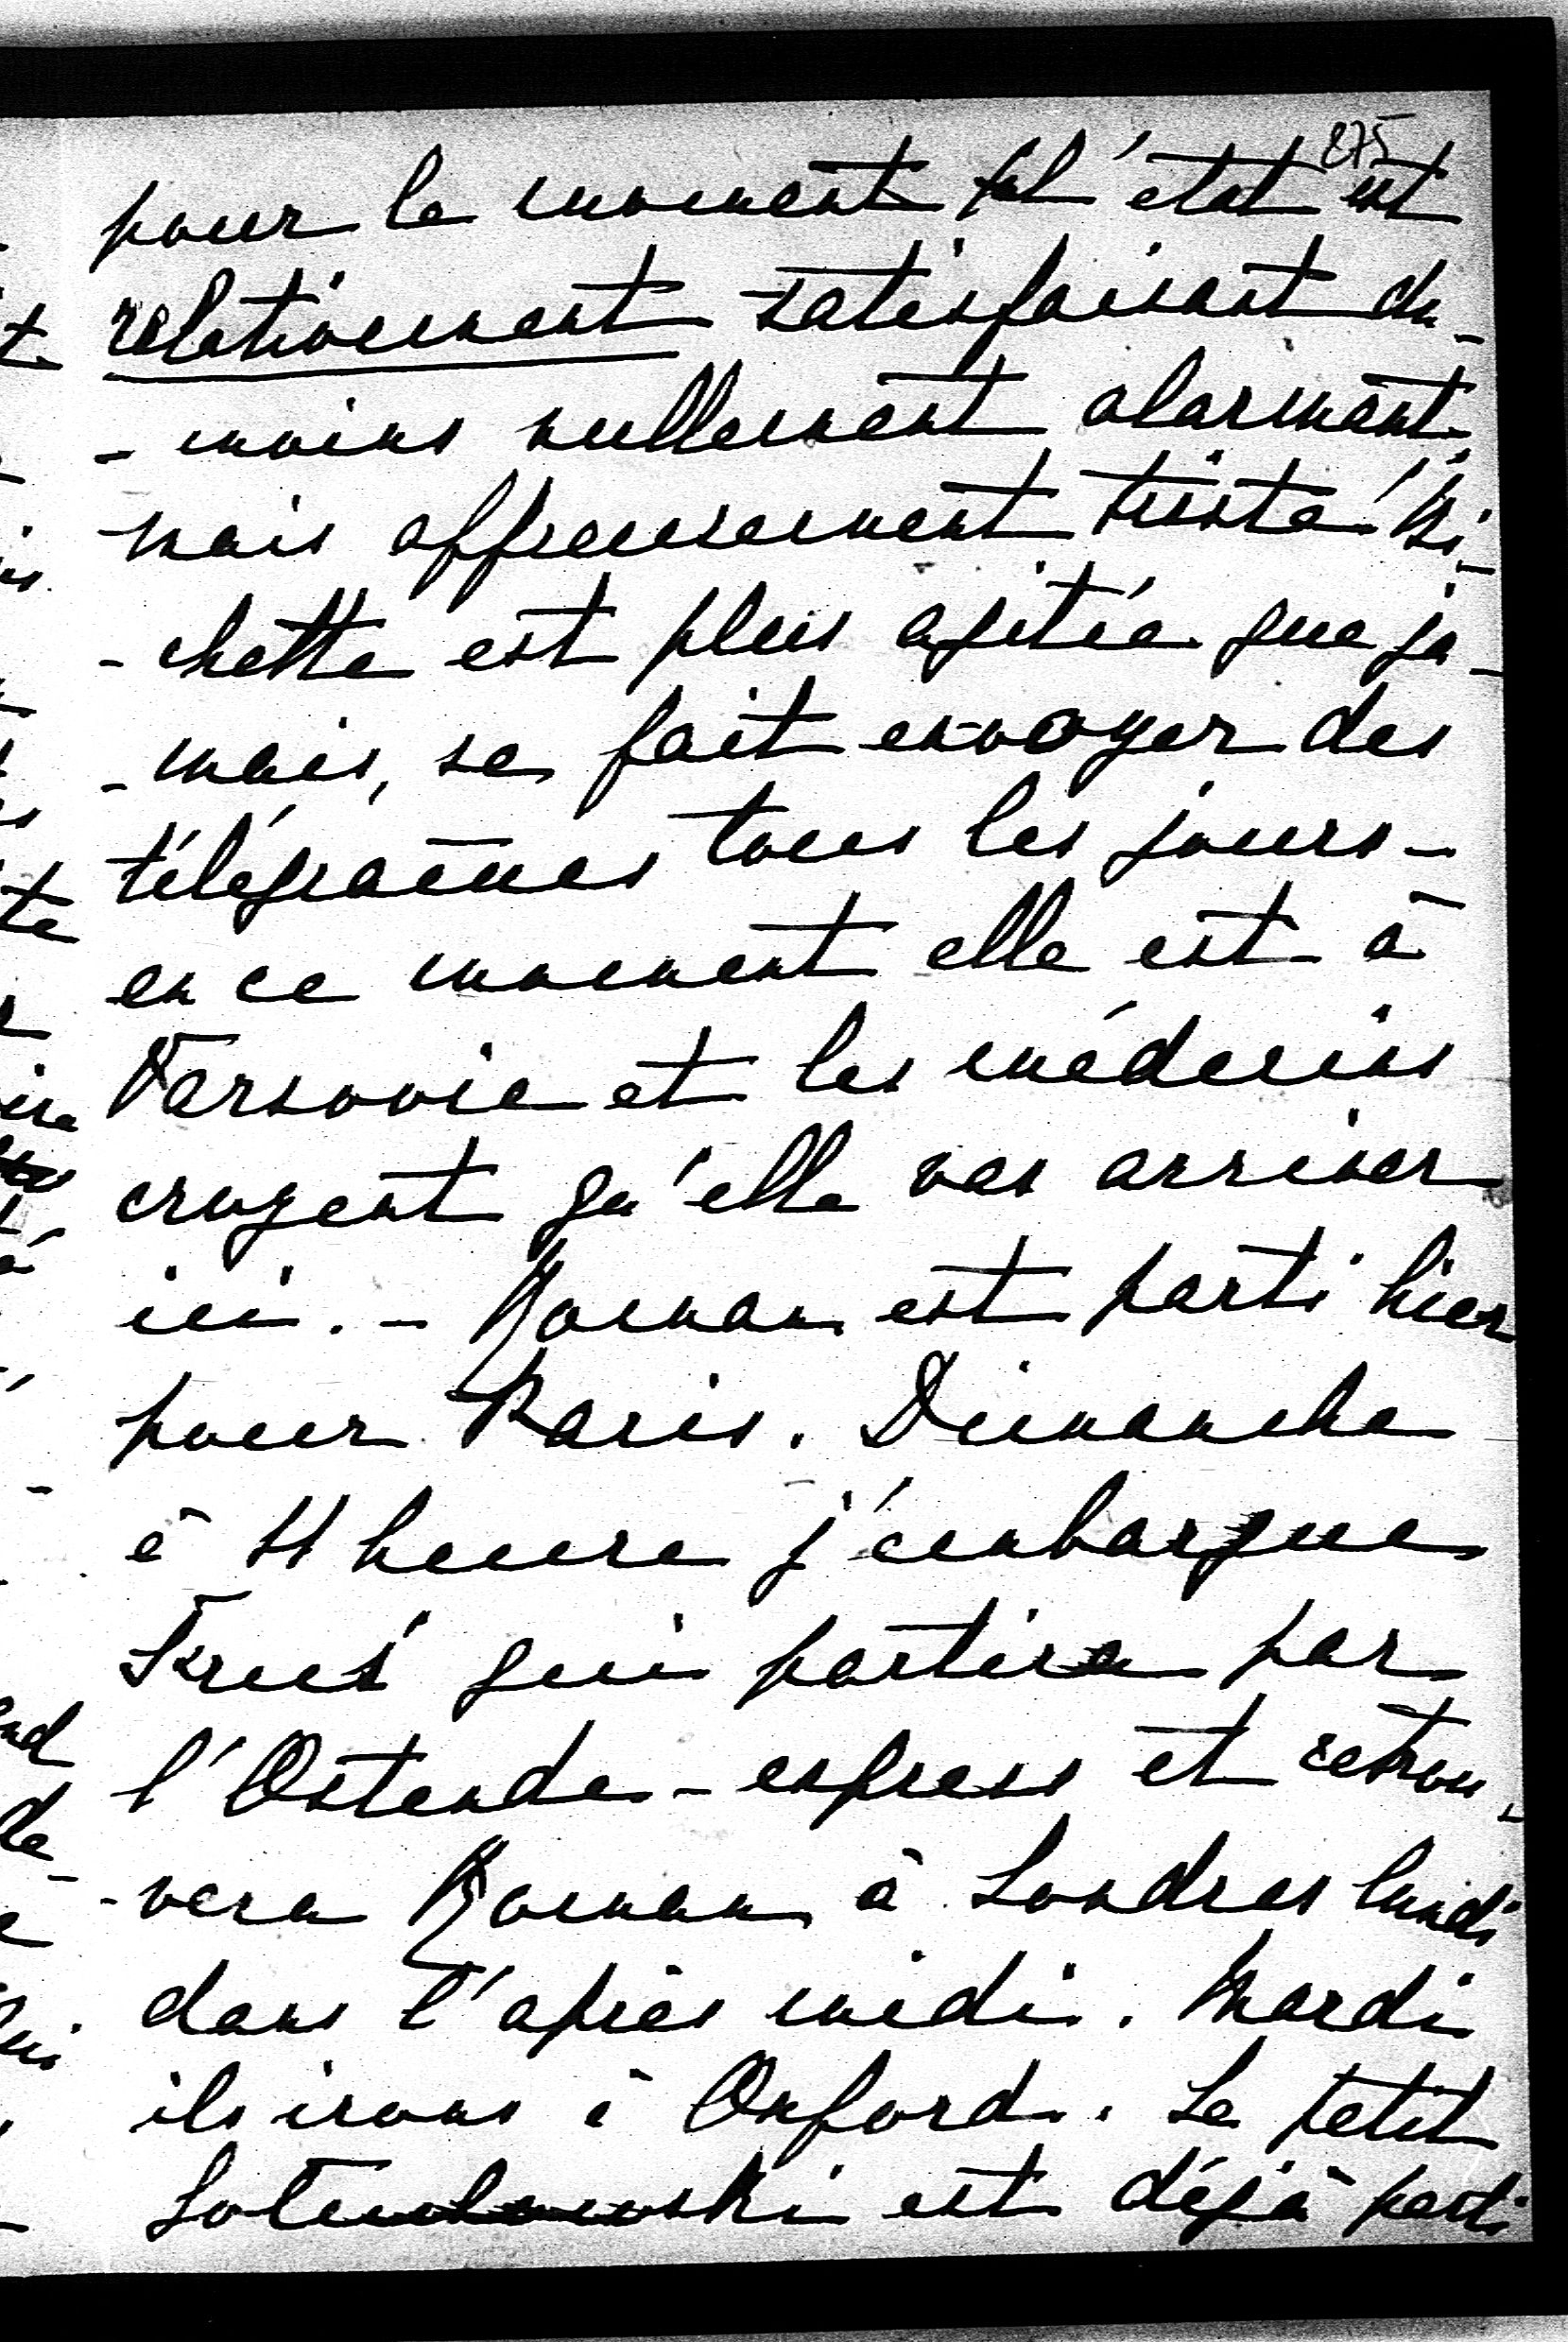 275
pour le moment l'état est
relativement satisfaisant du-
-moins nullement alarmant,
mais affreusement triste! Bi-
-chette est plus agitée que ja-
-mais, se fait envoyer des
télégrames tous les jours -
en ce moment elle est à
Varsovie et les médecins
croyent qu'elle vas arriver
ici. - Roman est parti hier
pour Paris. Dimanche
à 11 heure j'embarque
qui partira par
l'Ostende-express et retrou-
-vera Roman à Londres lundi
dans l'après midi. Mardi
ils irons à Oxford. Le petit
est déjà parti